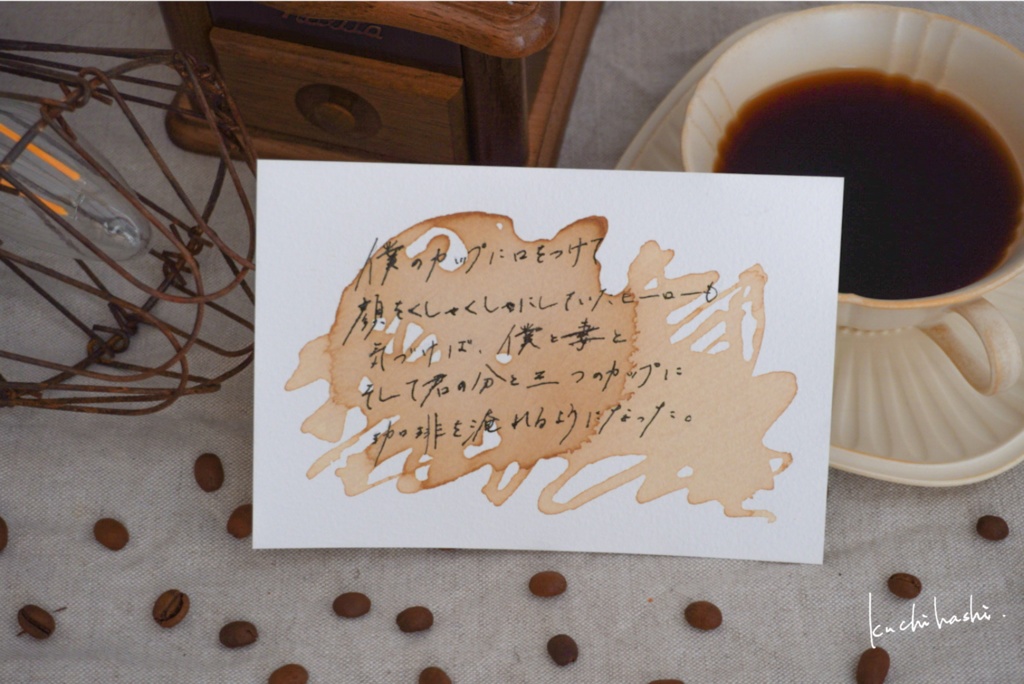 僕のカップに口をつけて
顔をくしゃくしゃにしていたヒーローも
気づけば、僕と妻と
そして君の分と三つのカップに
珈琲を淹れるようになった。
kuchihashi.